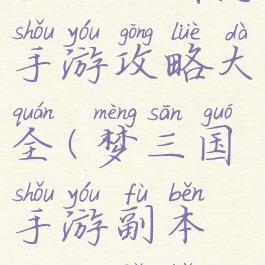 shǒu yóu gōng lüè dà
手游攻略大
quán mèng sān guó
全(梦三国
shǒu yóu fù běn
手游副本